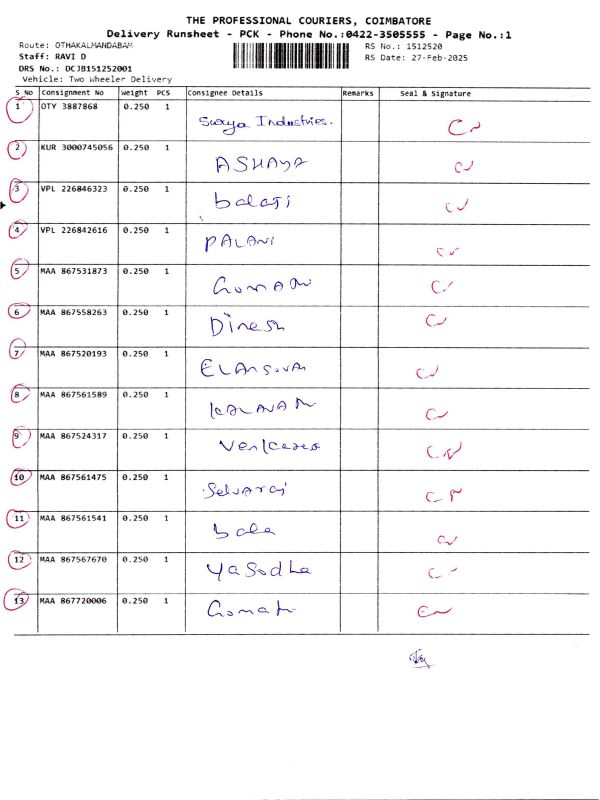 THE PROFESSIONAL COURIERS, COIMBATORE
Delivery Runsheet - PCK - Phone No.:0422-3505555 - Page No.:1
Route: OTHAKALMANDABAM RS No.: 1512520
Staff: RAVI D RS Date: 27-Feb-2025
DRS No.: DCJB151252001
Vehicle: Two Wheeler Delivery
S No Consignment No Weight PCS Consignee Details Remarks Seal & Signature
1 OTY 3887868 0.250 1 Surya Industries.
2 KUR 3000745056 0.250 1
3 VPL 226846323 0.250 1 balaji
4 VPL 226842616 0.250 1 PALANI
5 MAA 867531873 0.250 1
6 MAA 867558263 0.250 1 Dinesh
7 MAA 867520193 0.250 1
8 MAA 867561589 0.250 1
9 MAA 867524317 0.250 1
10 MAA 867561475 0.250 1 Selvaraj
11 MAA 867561541 0.250 1 bala
12 MAA 867567670 0.250 1 Yasodha
13 MAA 867720006 0.250 1